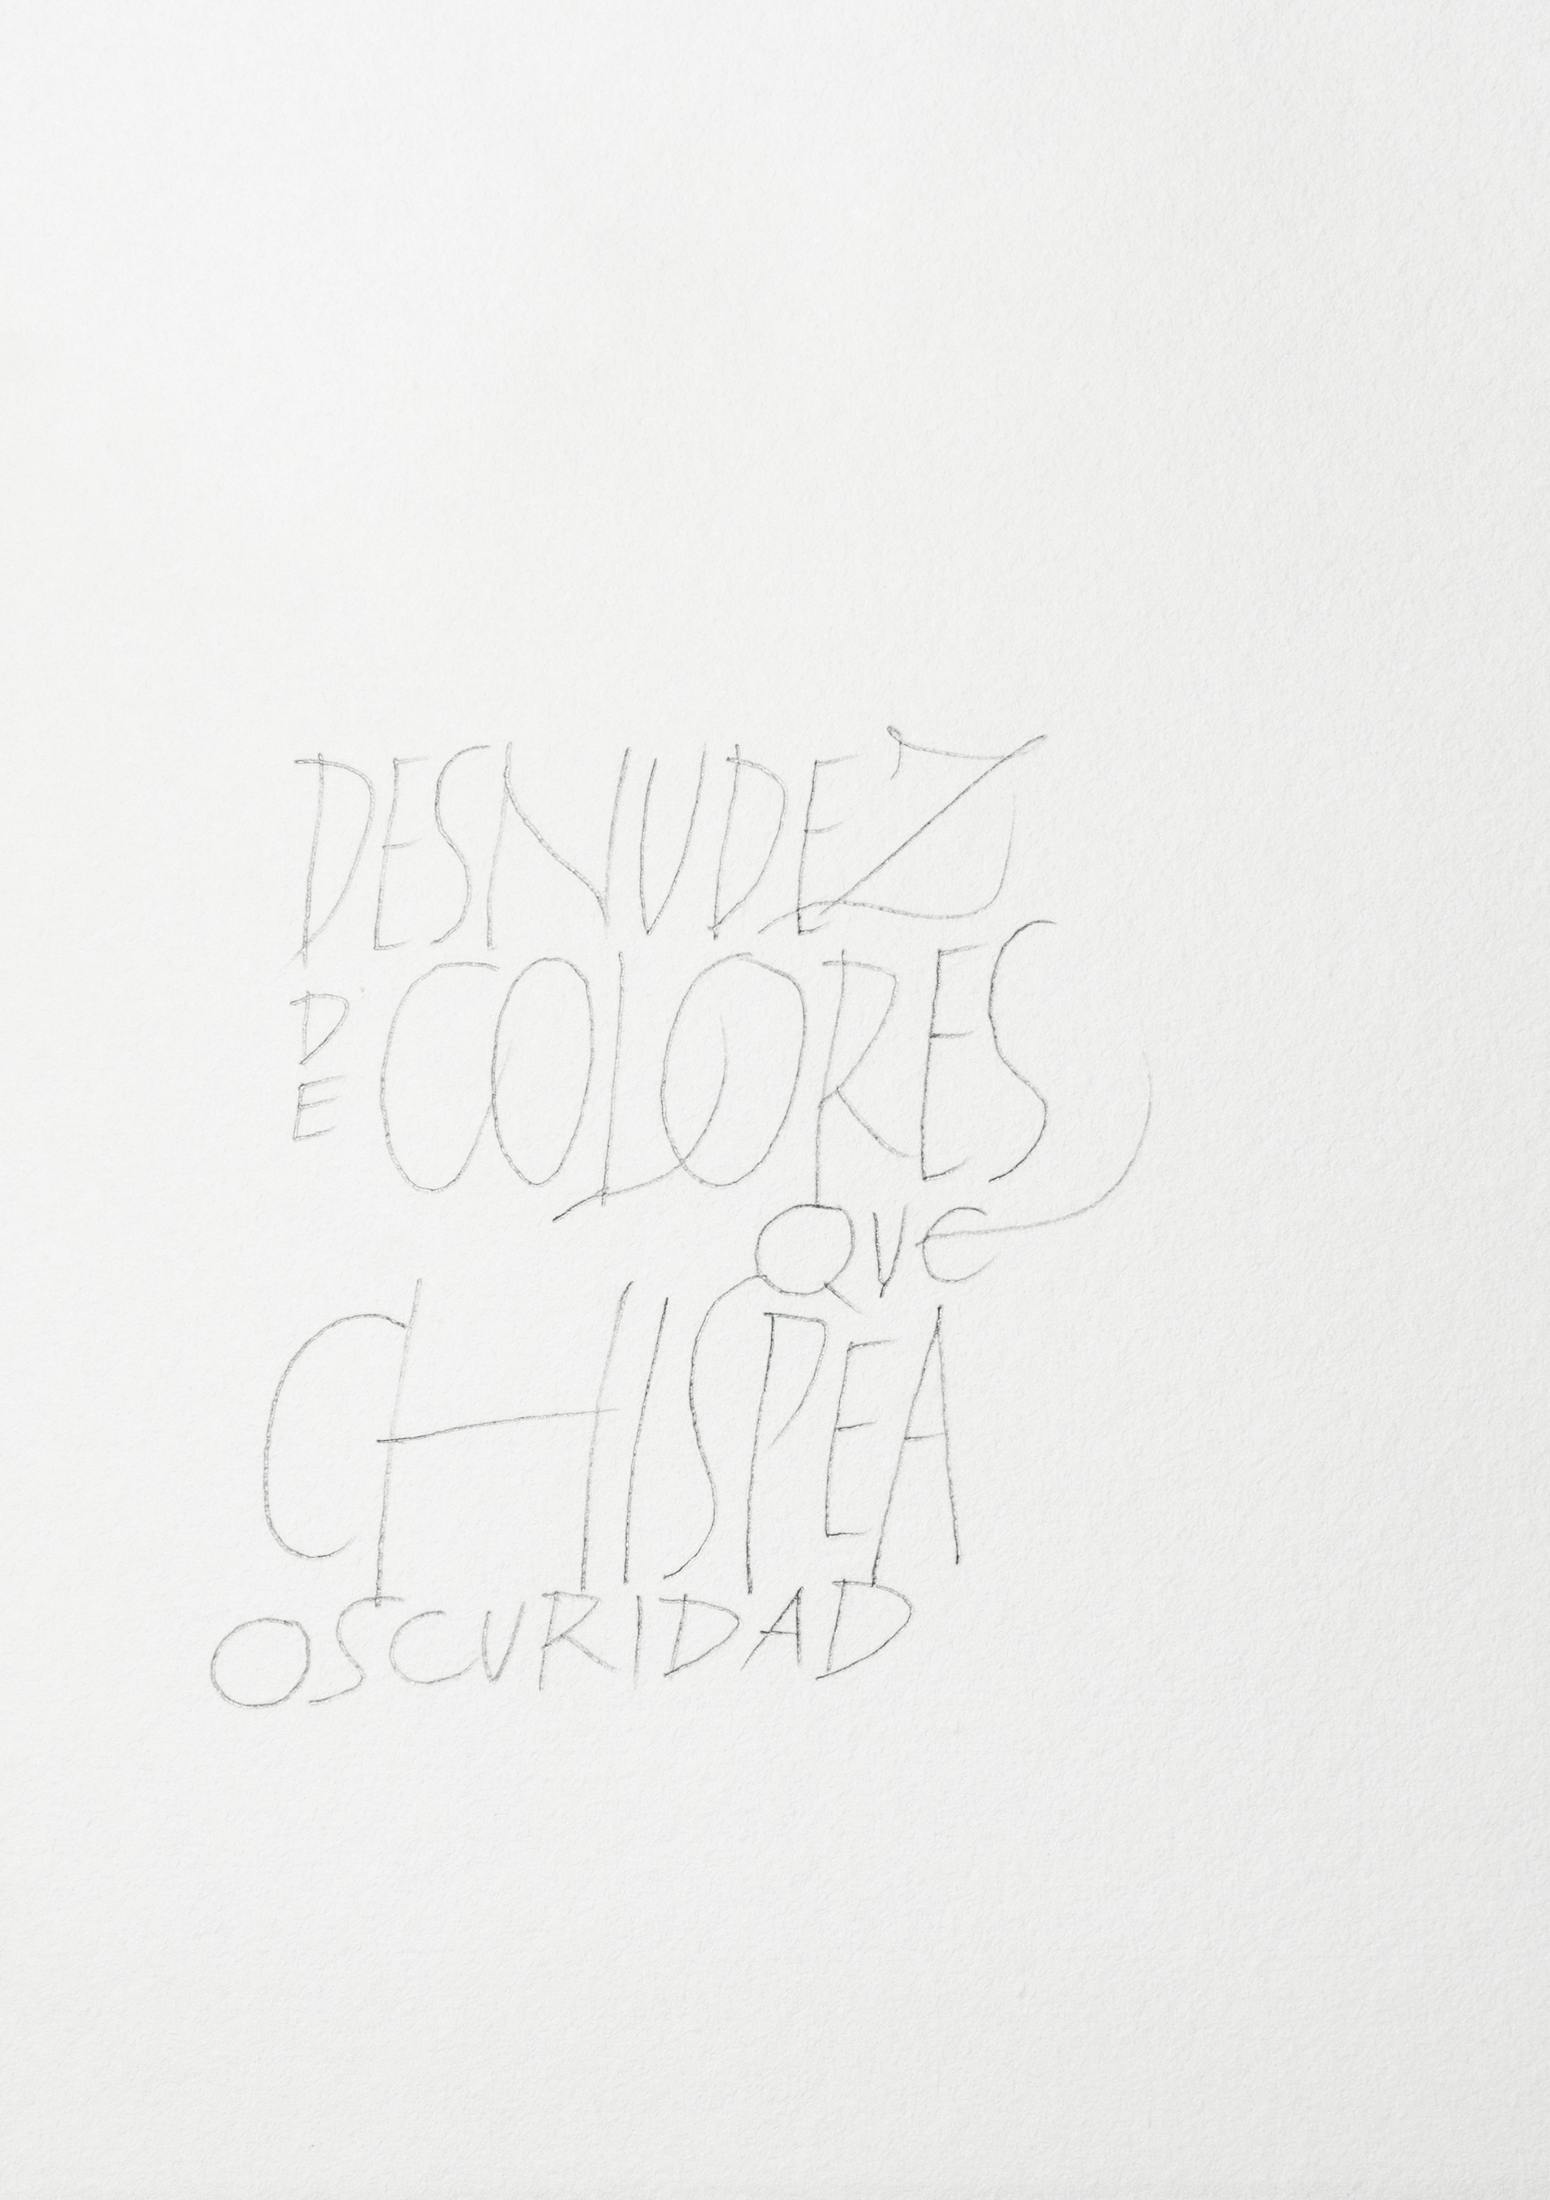 DESNUDEZ
DE COLORES
QUE
CHISPEA
OSCURIDAD